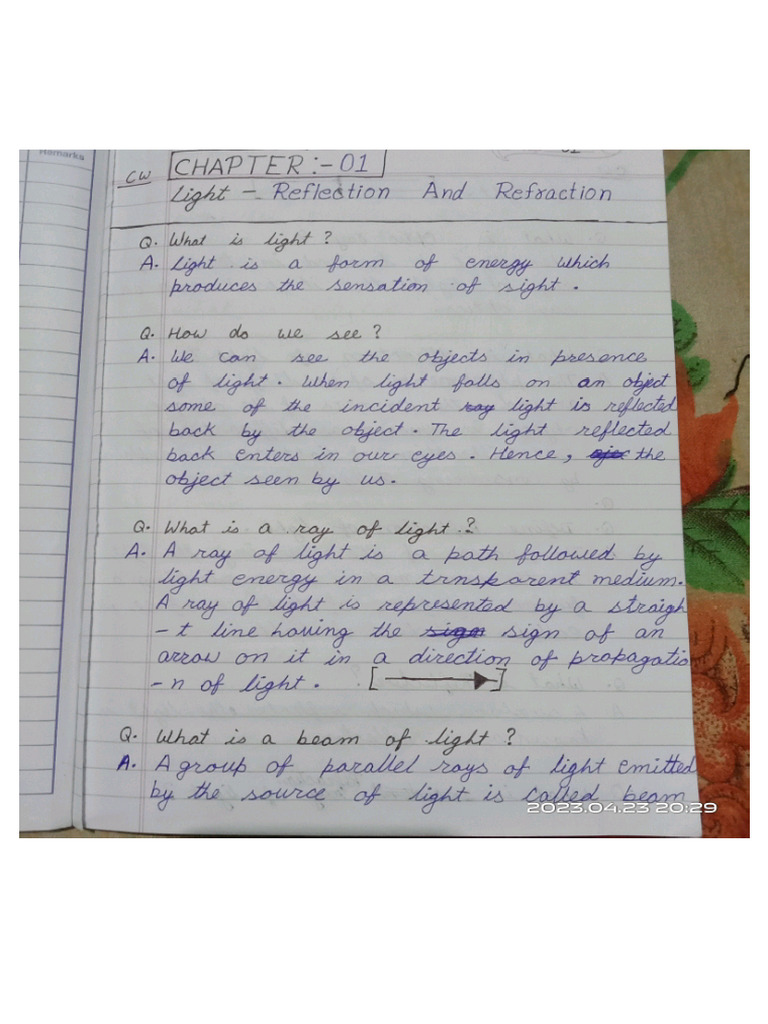 Remarks
01
CW CHAPTER :- 01
Light - Reflection And Refraction
Q. What is light ?
A. Light is a form of energy which
produces the sensation of sight .
Q. How do we see ?
A. We can see the objects in presence
of light . When light falls on an object
some of the incident ray light is reflected
back by the object . The light reflected
back enters in our eyes . Hence , the
object seen by us .
Q. What is a ray of light ?
A. A ray of light is a path followed by
light energy in a trnsparent medium.
A ray of light is represented by a straigh
-t line having the sign sign of an
arrow on it in a direction of propagatio
-n of light .
Q. What is a beam of light ?
A. A group of parallel rays of light emitted
by the source of light is called beam
2023.04.23 20:29